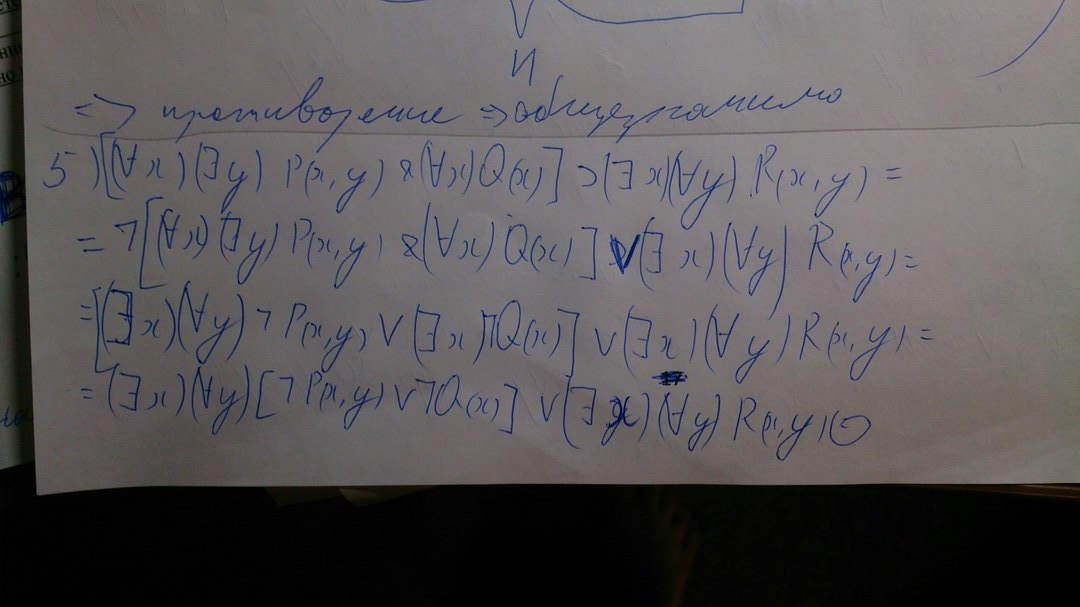 И
=> противоречие => общезначимо
5) [(∀x)(∃y) P(x, y) & (∀x) Q(x)] ⊃ (∃x)(∀y) R(x, y) =
= ¬[(∀x)(∃y) P(x, y) & (∀x) Q(x)] ∨ (∃x)(∀y) R(x, y) =
= [(∃x)(∀y) ¬P(x, y) ∨ (∃x) ¬Q(x)] ∨ (∃x)(∀y) R(x, y) =
= (∃x)(∀y) [¬P(x, y) ∨ ¬Q(x)] ∨ (∃x)(∀y) R(x, y) =